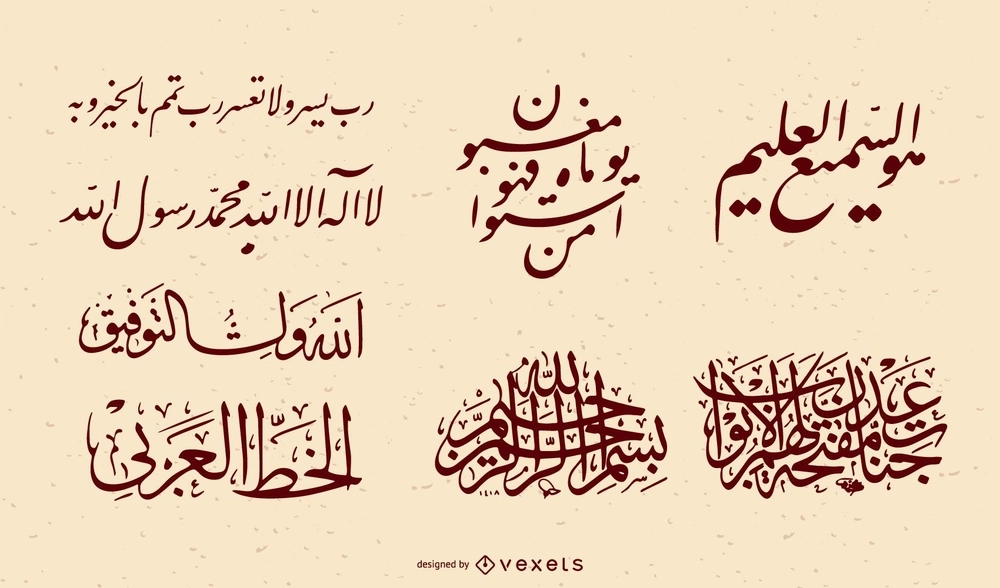 رب يسر ولا تعسر رب تمم بالخير وبه
لا اله الا الله محمد رسول الله
الله ولي التوفيق
الخط العربي
من استوا يوماه فهو مغبون
بسم الله الرحمن الرحيم
١٤١٨
هو السّميع العليم
جنات عدن مفتحة لهم الأبواب
designed by vexels